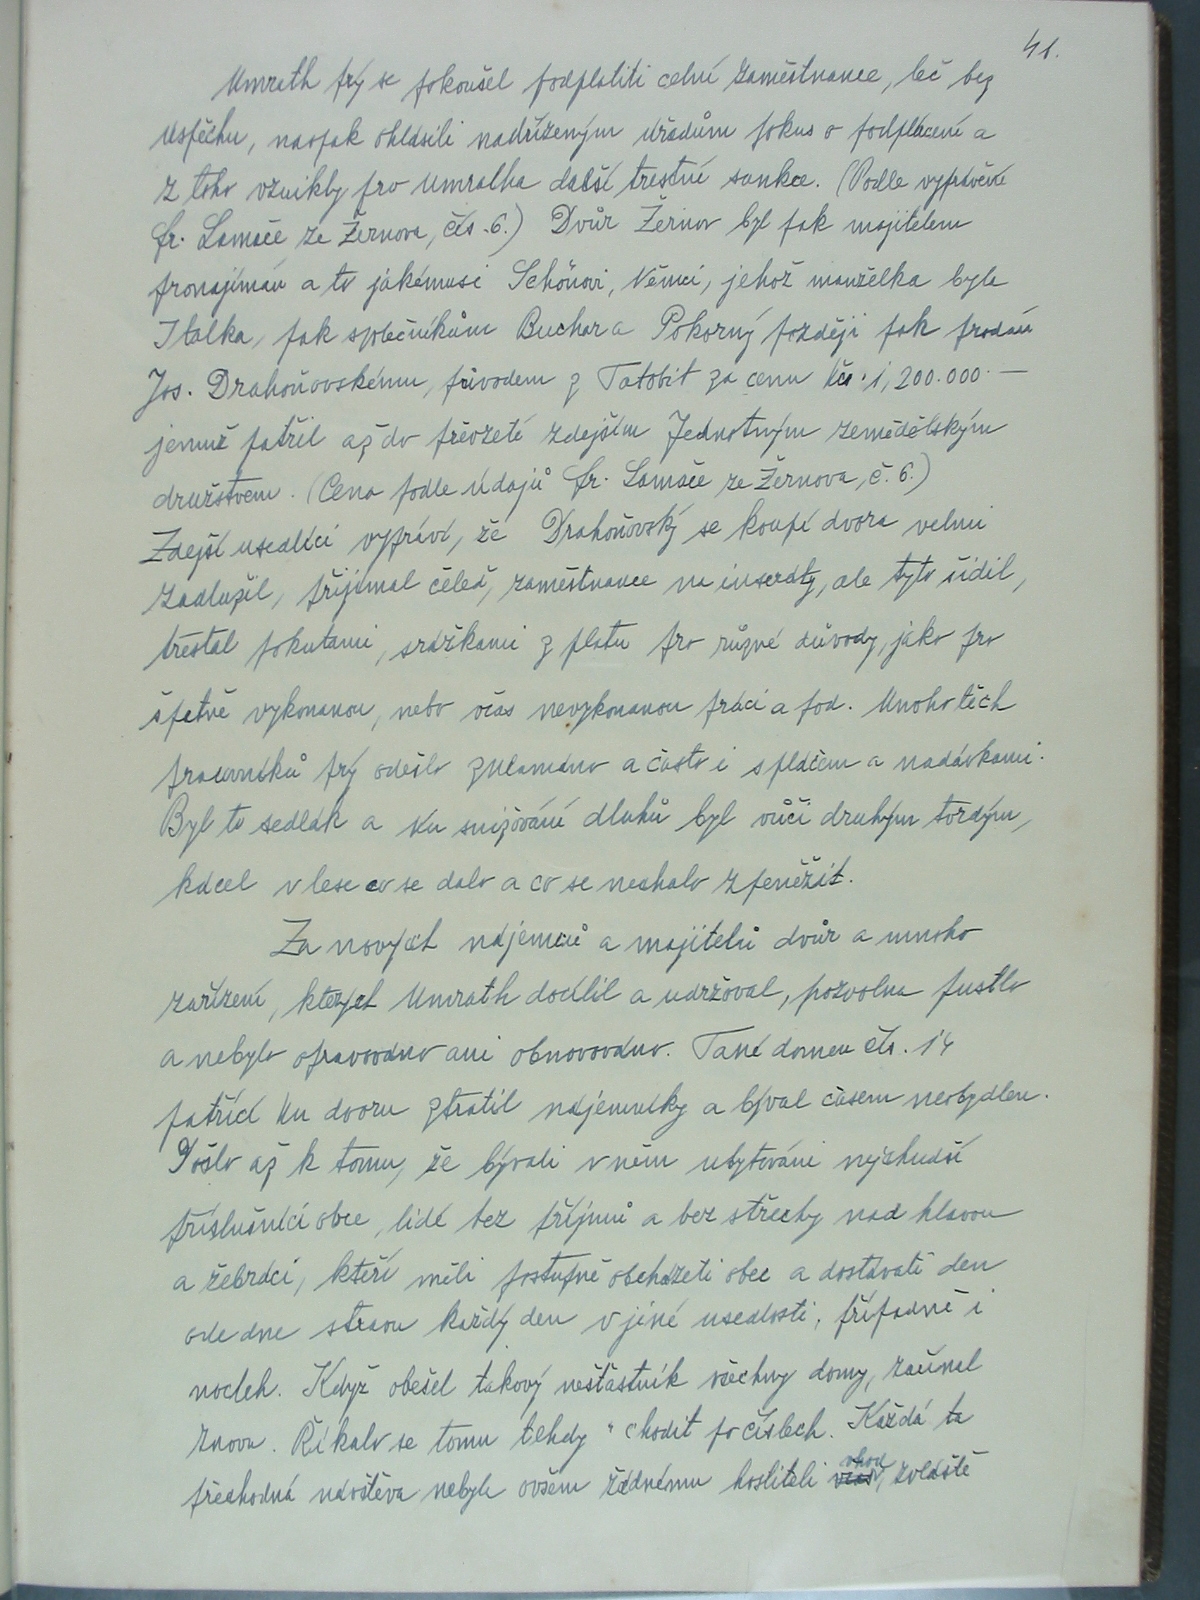 41.
Umrath prý se pokoušel podplatiti celní zaměstnance, leč bez
úspěchu, naopak ohlásili nadřízeným úřadům pokus o podplácení a
z toho vznikly pro Umratha další trestní sankce. (Podle vyprávění
Fr. Lamače ze Žernova, čís. 6.) Dvůr Žernov byl pak majitelem
pronajímán a to jakémusi Schönovi, Němci, jehož manželka byla
Italka, pak společníkům Buchar a Pokorný později pak prodán
Jos. Drahoňovskému, původem z Tatobit za cenu Kčs 1,200.000.—
jemuž patřil až do převzetí zdejším Jednotným zemědělským
družstvem. (Cena podle údajů Fr. Lamače ze Žernova, č. 6.)
Zdejší usedlíci vypráví, že Drahoňovský se koupí dvora velmi
zadlužil, přijímal čeleď, zaměstnance na inseráty, ale tyto šidil,
trestal pokutami, srážkami z platu pro různé důvody, jako pro
špatně vykonanou, nebo včas nevykonanou práci a pod. Mnoho těch
pracovníků prý odešlo zklamáno a často i s pláčem a nadávkami.
Byl to sedlák a ku snižování dluhů byl vůči druhým tvrdým,
kácel v lese co se dalo a co se nechalo zpeněžit.
Za nových nájemců a majitelů dvůr a mnoho
zařízení, kterých Umrath docílil a udržoval, pozvolna pustlo
a nebylo opravováno ani obnovováno. Také domek čís. 14
patřící ku dvoru ztratil nájemníky a býval časem neobydlen.
Došlo až k tomu, že bývali v něm ubytováni nejchudší
příslušníci obce, lidé bez příjmů a bez střechy nad hlavou
a žebráci, kteří měli postupně obcházeti obec a dostávati den
ode dne stravu každý den v jiné usedlosti, případně i
nocleh. Když obešel takový nešťastník všechny domy, začínal
znovu. Říkalo se tomu tehdy "chodit po číslech. Každá ta
přechodná návštěva nebyla ovšem žádnému hostiteli vhod, zvláště